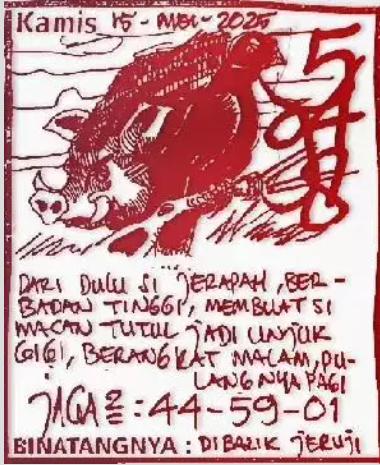 Kamis 15 - MEI - 2025
DARI DULU SI JERAPAH, BER-
BADAN TINGGI, MEMBUAT SI
MACAN TUTUL JADI UNJUK
GIGI, BERANGKAT MALAM, PU-
LANGNYA PAGI
JAGA2 : 44-59-01
BINATANGNYA : DIBALIK JERUJI